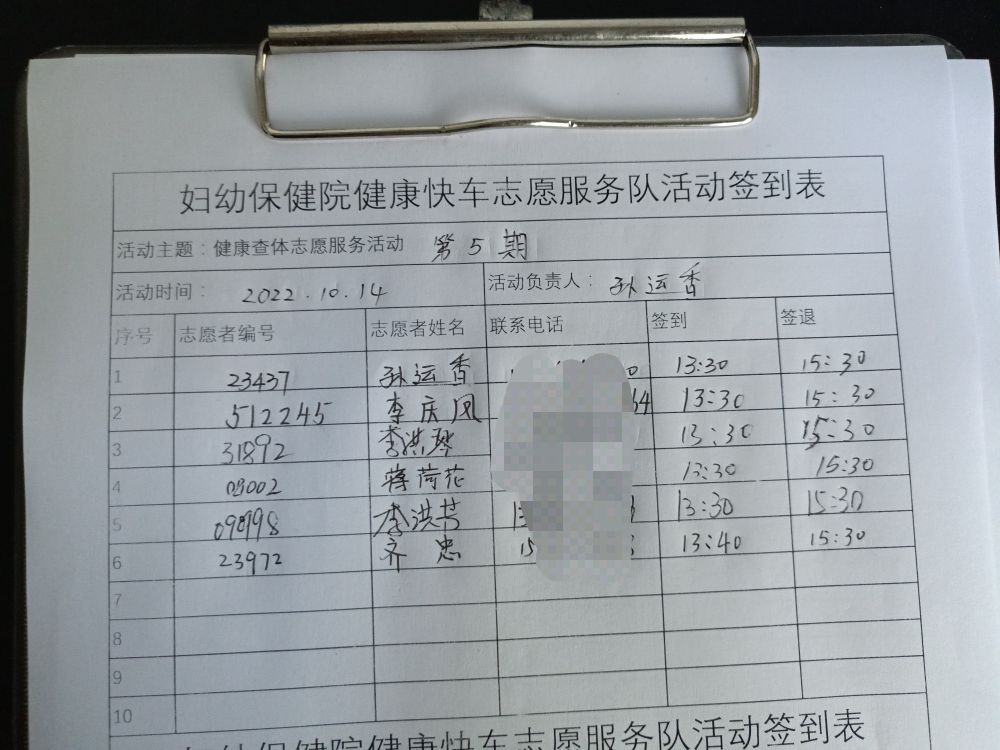 妇幼保健院健康快车志愿服务队活动签到表
活动主题：健康查体志愿服务活动 第5期
活动时间： 2022.10.14 活动负责人： 孙运香
序号 志愿者编号 志愿者姓名 联系电话 签到 签退
1 23437 孙运香 13:30 15:30
2 512245 李庆凤 13:30 15:30
3 31892 李洪琴 13:30 15:30
4 09002 蒋荷花 13:30 15:30
5 李洪芳 13:30 15:30
6 23972 齐忠 13:40 15:30
7
8
9
10
妇幼保健院健康快车志愿服务队活动签到表